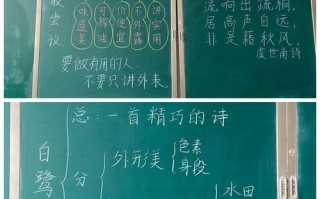 收尝议
味道美
可榨油
价便宜
不外露
讲实用
要做有用的人
不要只讲外表。
流响出疏桐。
居高声自远，
非是藉秋风。
虞世南诗
总：一首精巧的诗
白鹭
分
外形美
色素
身段
水田